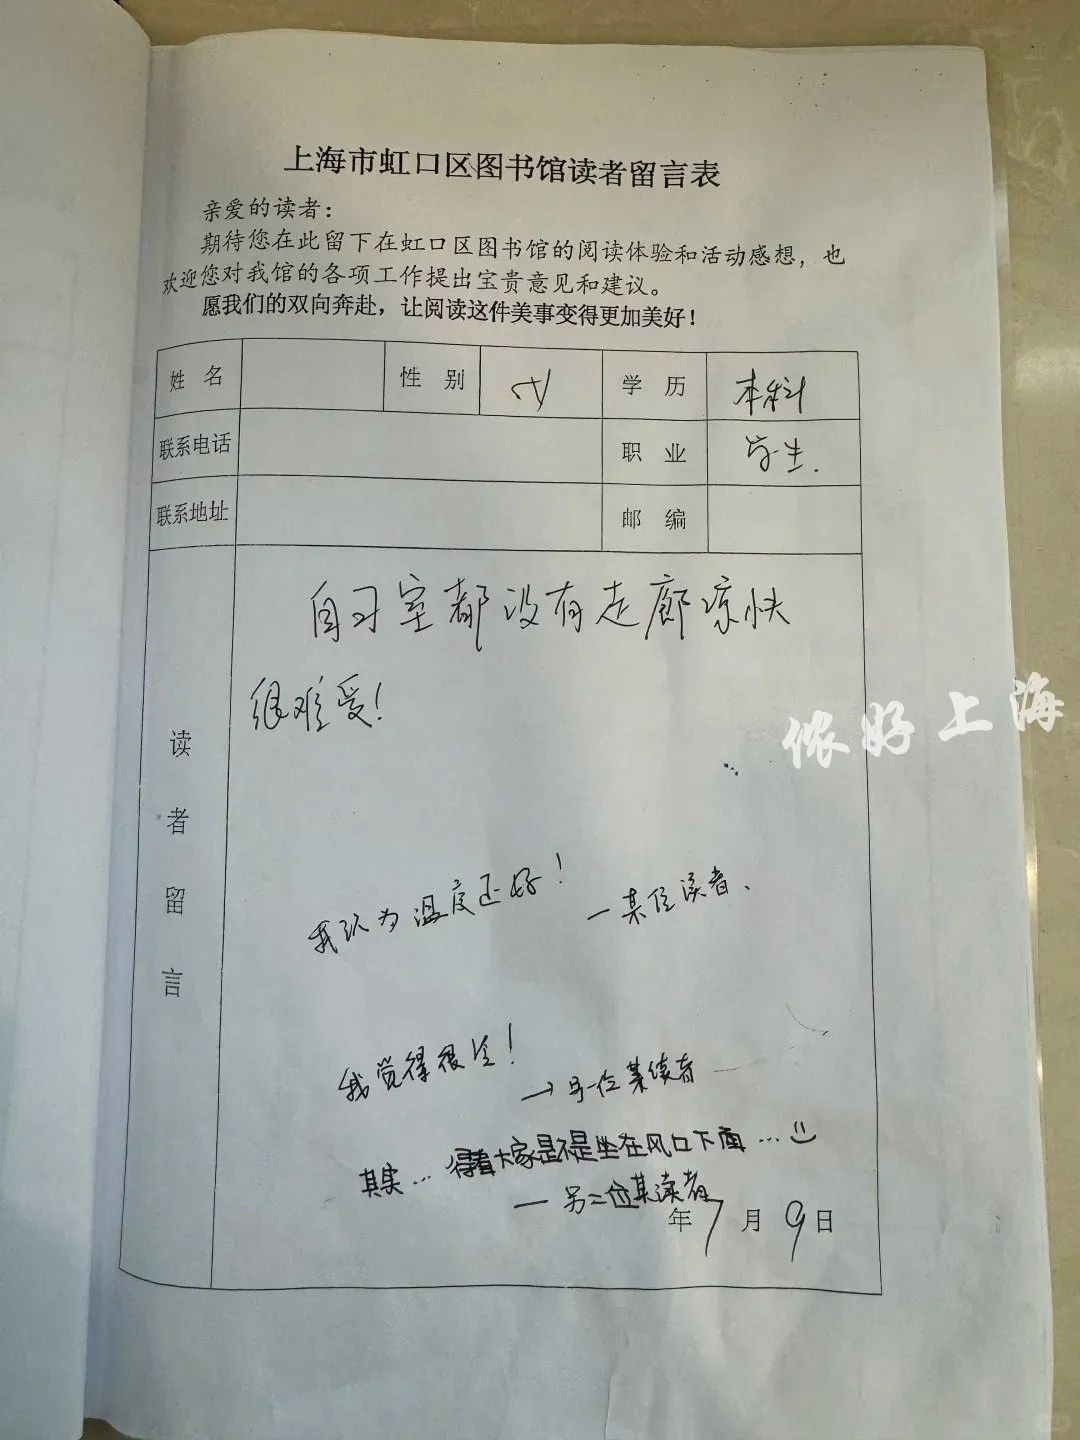 上海市虹口区图书馆读者留言表
亲爱的读者：
期待您在此留下在虹口区图书馆的阅读体验和活动感想，也
欢迎您对我馆的各项工作提出宝贵意见和建议。
愿我们的双向奔赴，让阅读这件美事变得更加美好！
姓 名 性 别 女 学 历 本科
联系电话 职 业 学生.
联系地址 邮 编
读者留言
自习室都没有走廊凉快
很难受！
侬好上海
我认为温度还好！
—某位读者、
我觉得很冷！
→另一位某读者
其实… 得看大家是不是坐在风口下面…
—另二位某读者
年7月9日